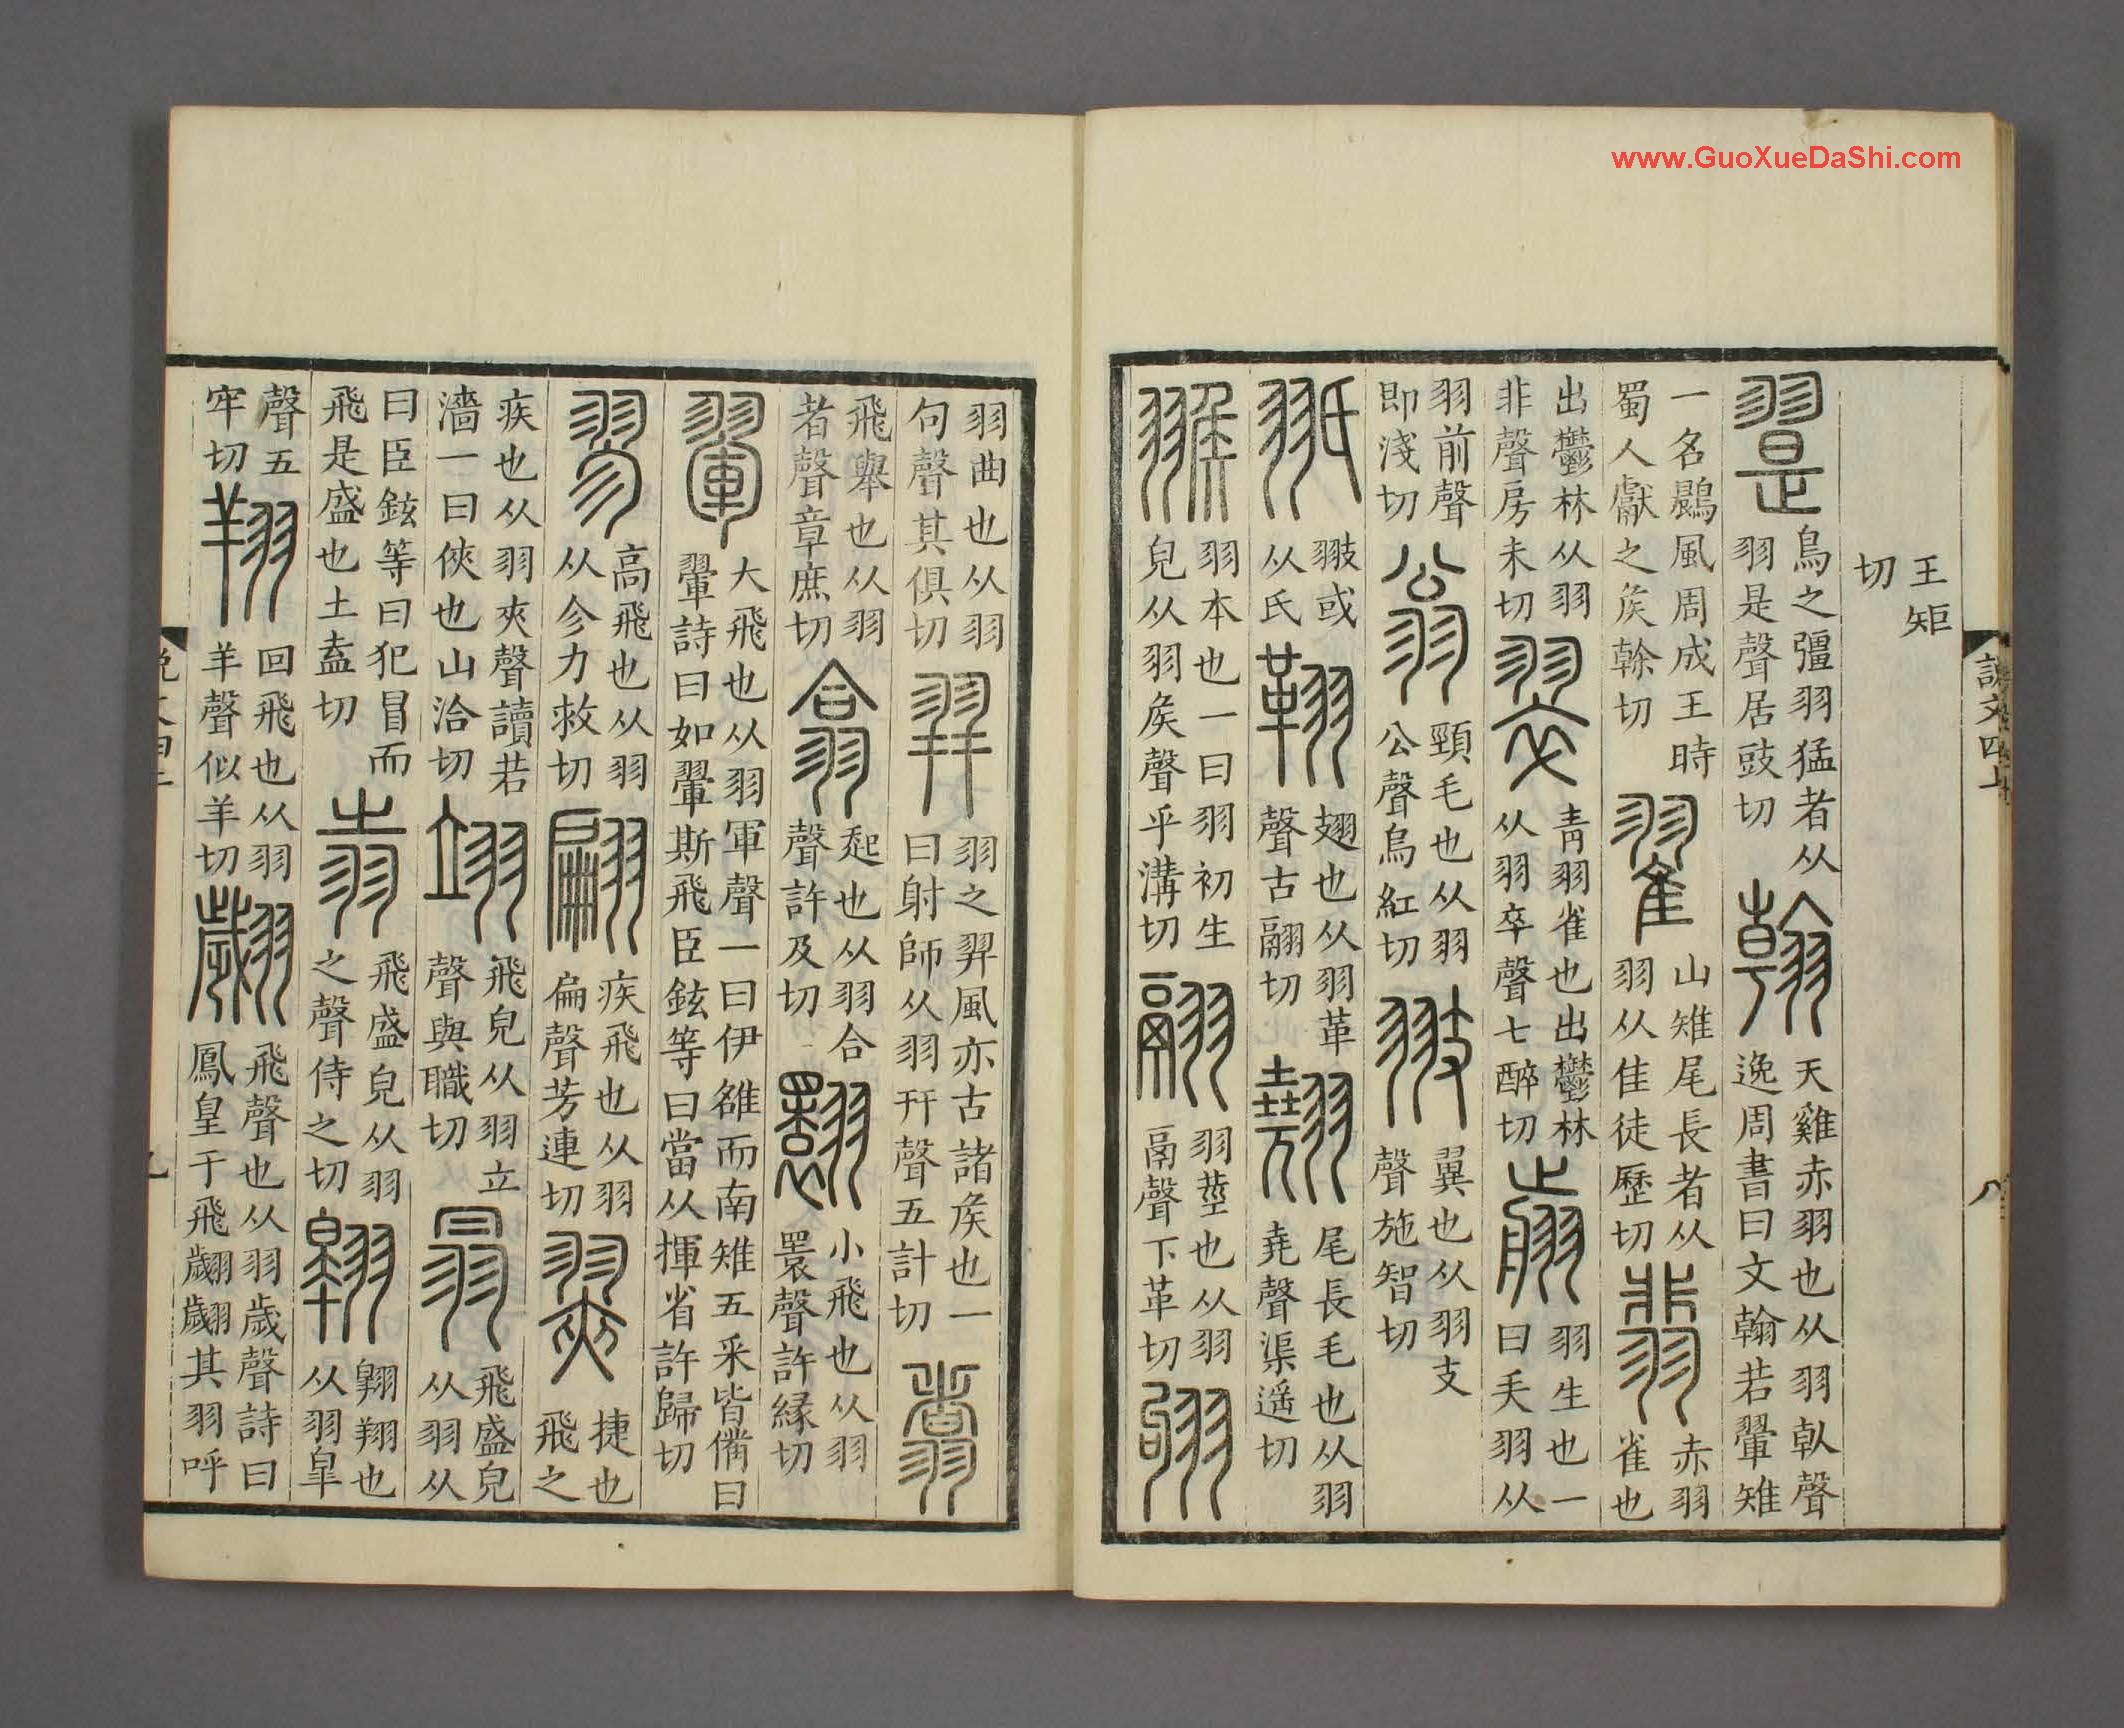 www.GuoXueDaShi.com
說文四上
八
王矩切
翨鳥之彊羽猛者从羽是聲居豉切翰天雞赤羽也从羽倝聲逸周書曰文翰若翬雉
一名鷐風周成王時蜀人獻之矦幹切翟山雉尾長者从羽从隹徒歷切翡赤羽雀也
出鬱林从羽非聲房未切翠青羽雀也出鬱林从羽卒聲七醉切翦羽生也一曰夭羽从
羽前聲即淺切翁頸毛也从羽公聲烏紅切翄翼也从羽支聲施智切
𦐊翄或从氏䩯翅也从羽革聲古翮切翹尾長毛也从羽堯聲渠遥切
翭羽本也一曰羽初生皃从羽矦聲乎溝切翮羽莖也从羽鬲聲下革切翑
羽曲也从羽句聲其俱切羿羽之羿風亦古諸矦也一曰射師从羽幵聲五計切翥
飛舉也从羽者聲章庶切翕起也从羽合聲許及切翾小飛也从羽睘聲許緣切
翬大飛也从羽軍聲一曰伊雒而南雉五采皆備曰翬詩曰如翬斯飛臣鉉等曰當从揮省許歸切
翏高飛也从羽从㐱力救切翩疾飛也从羽扁聲芳連切翜捷也飛之
疾也从羽夾聲讀若濇一曰俠也山洽切翊飛皃从羽立聲與職切𦐇飛盛皃从羽从
曰臣鉉等曰犯冒而飛是盛也土盍切𦐉飛盛皃从羽之聲侍之切翱翱翔也从羽皐
聲五牢切翔回飛也从羽羊聲似羊切翽飛聲也从羽歲聲詩曰鳳皇于飛翽翽其羽呼